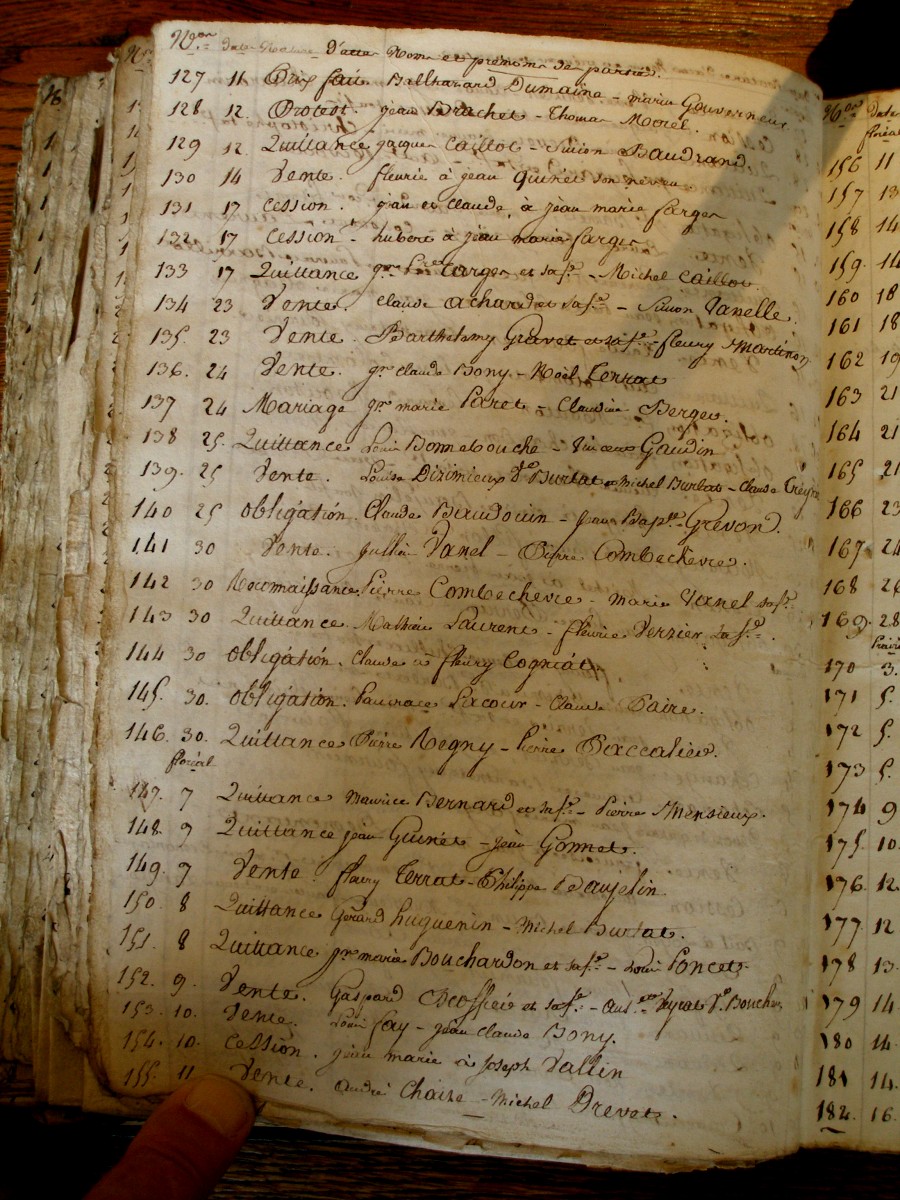 N.os Date Nature D'actes Noms et prénoms des parties.
127 11 Prix fait Balthazard Dumaine - marie Gouverneur
128 12. Protest. jean Brachet - Thomas Morel.
129 12. Quittance jacques Caillot - Simon Baudrand
130 14 Vente. fleurie à jean Guinet son neveu.
131 17 Cession. jean et Claude, à jean marie farges
132 17 Cession - hubert à jean marie farges
133 17 Quittance farges et sa f.e - Michel Caillot.
134 23 Vente. Claude Achard et sa f.e - Simon Vanelle.
135. 23 Vente. Barthelemy Gravet et sa f.e - fleury Martinon
136. 24 Vente. jn claude Bony - Noël Terrat
137 24 Mariage jn marie Paret - Claudine Berger.
138 25. Quittance Louis Bonnebouche - Vincent Gaudin
139. 25 Vente. Louise Dizimieux V.e Burtat et Michel Burtat - Claude
140 25 obligation. Claude Baudouin - jean Bap.te Grevond.
141 30 Vente. jullin Vanel - Pierre Combechevre.
142 30 Reconnaissance Pierre Combechevre - Marie Vanel sa f.e
143 30 Quittance. Mathieu Laurent - fleurie Verzier sa f.e.
144 30 obligation. Claude à fleury Cogniat
145. 30. obligation. Pancrace Lacour - Claude Paire.
146. 30. Quittance Pierre Regny - Pierre Baccalier.
floréal
147. 7 Quittance Maurice Bernard et sa f.e - Pierre Mensieux.
148. 7 Quittance jean Guinet - jean Gonnet.
149. 7 Vente. fleury Terrat - Philippe Beaujelin
150. 8 Quittance Gérard huguenin - Michel Burtat.
151. 8 Quittance jn marie Bouchardon et sa f.e - Louis Poncet.
152. 9. Vente. Gaspard et sa f.e - V.e Boucher
153. 10. Vente. Louis fay - jean claude Bony.
154. 10. Cession. jean marie à joseph Vallin
155. 11 Vente. andré Chaize - Michel Drevet.
N.os Date
floréal
156 11
157 13
158 14
159. 14
160 18
161 18
162 19
163 21
164 21
165 21
166 23
167 24
168 26
169. 28
170 3.
171 5.
172 5.
173 5.
174 9
175. 10.
176. 12.
177. 12
178 13.
179 14.
180 14.
181 14.
182. 16.